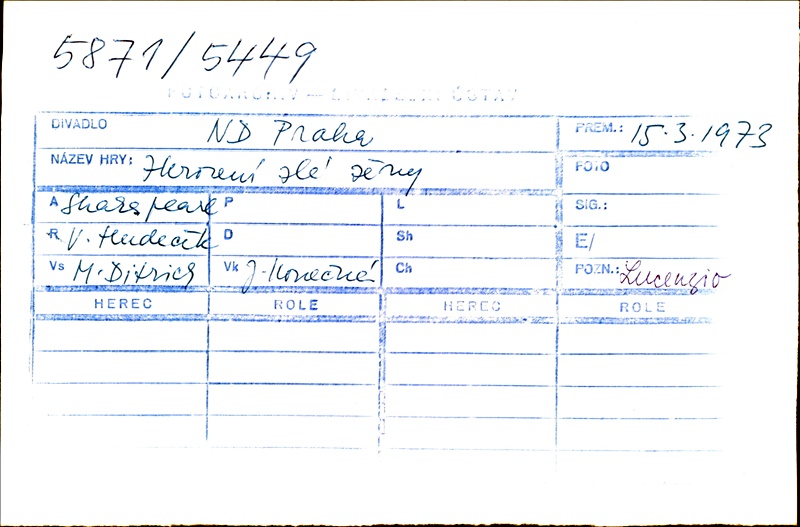 5871/5449
FOTOARCHIV — DIVADELNÍ ÚSTAV
DIVADLO ND Praha PREM.: 15.3.1973
NÁZEV HRY: Zkrocení zlé ženy FOTO
A Shakespeare P L SIG.:
R V. Hudeček D Sh E/
Vs M. Ditrich Vk J. Konečná Ch POZN.: Lucenzio
HEREC ROLE HEREC ROLE